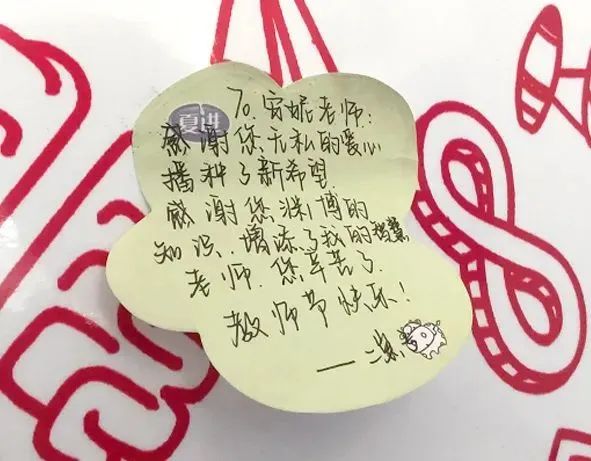 夏进
To. 安妮老师:
感谢您无私的爱心
播种了新希望.
感谢您渊博的
知识.增添了我的智慧
老师.您辛苦了.
教师节快乐!